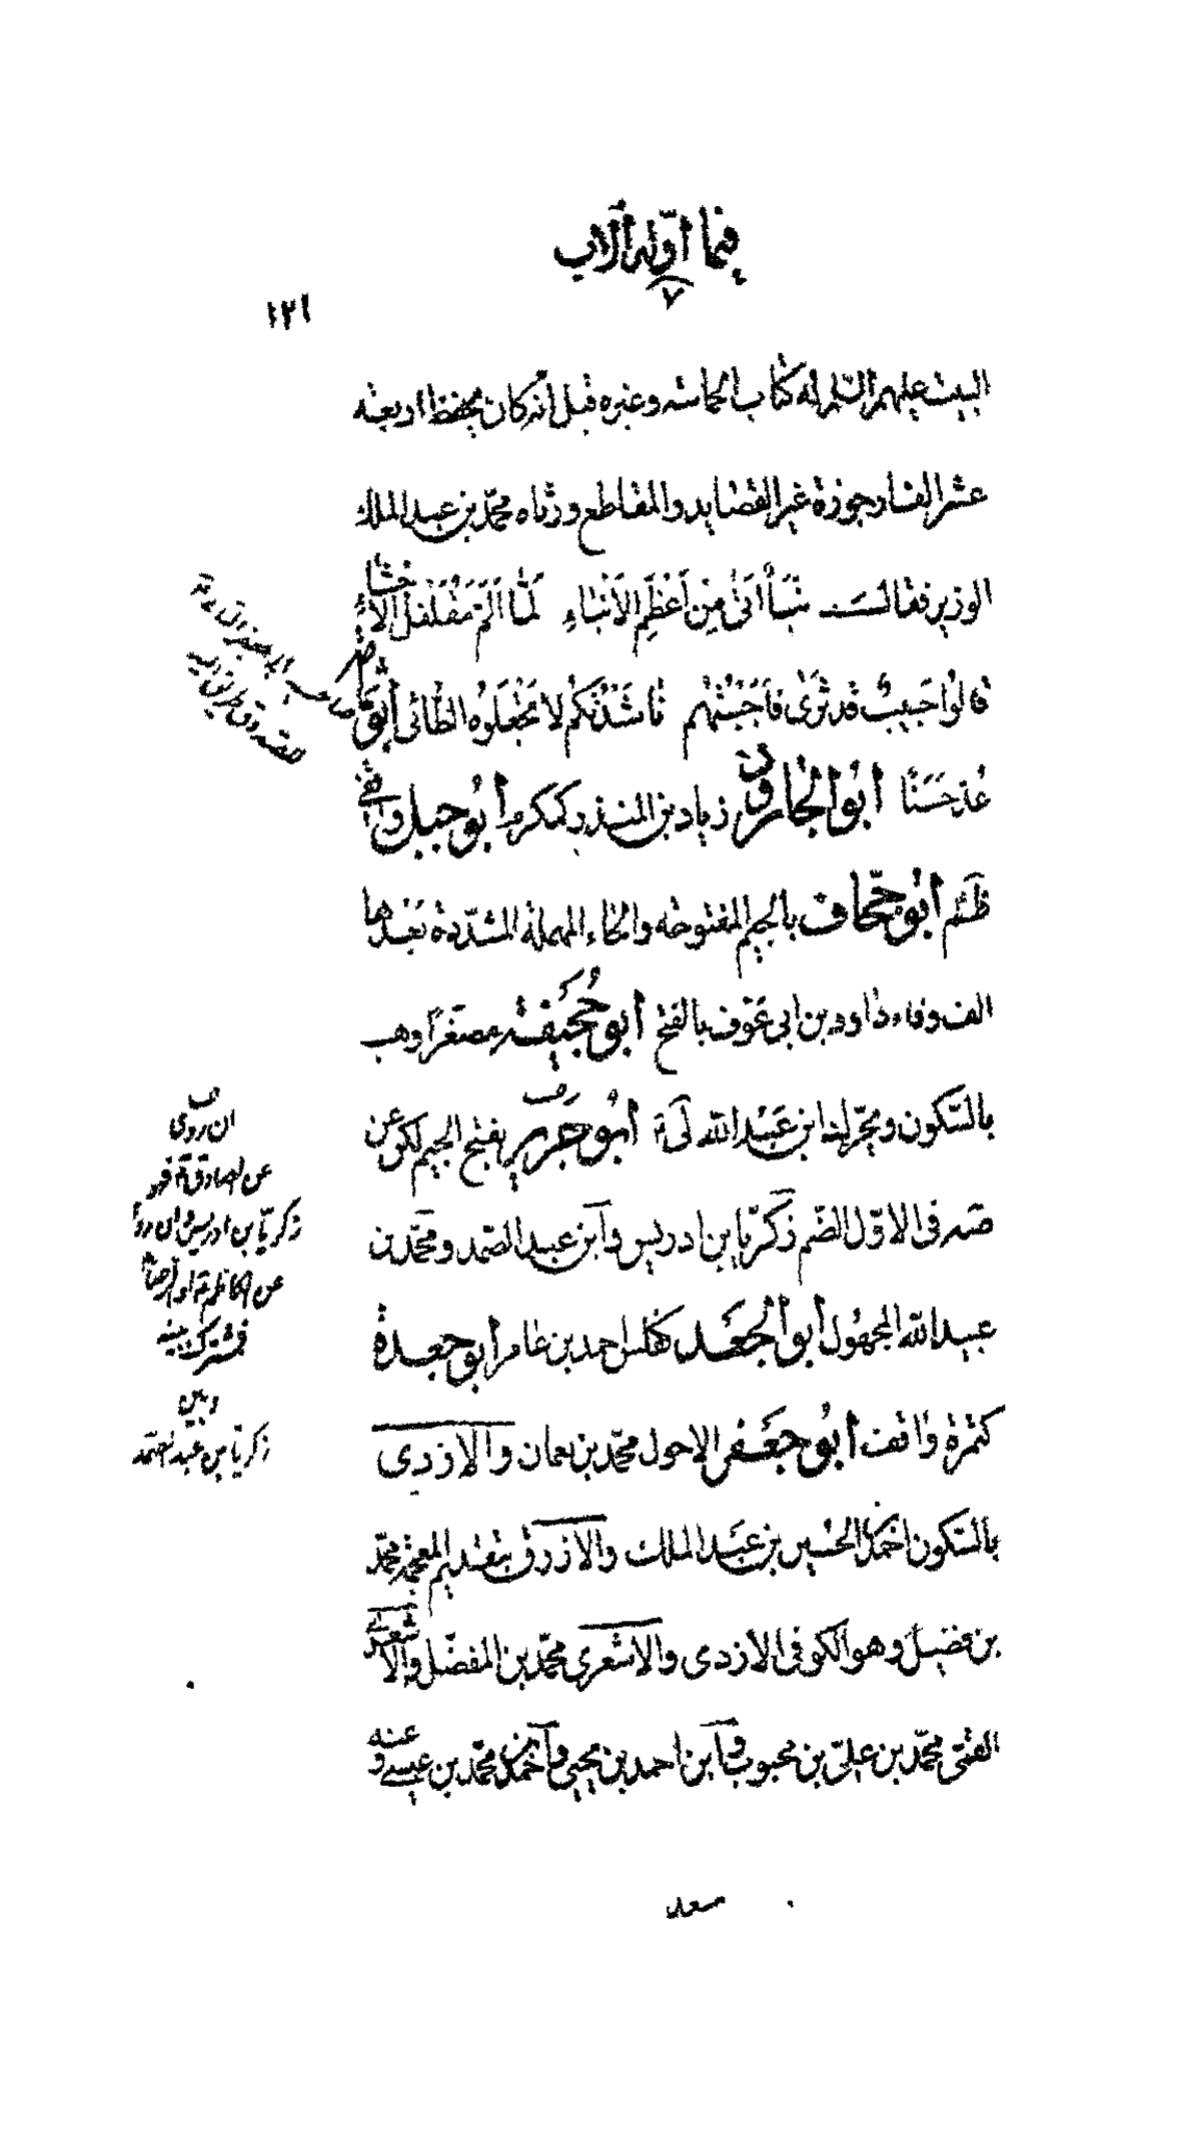 فيما اوّله الاب
٧
١٢١
البيت عليهم السّلم له كتاب الحماسه وغيره قيل انّه كان يحفظ اربعة
عشر الف ارجوزة غير القصايد والمقاطع ورثاه محمّد بن عبد الملك
الوزير فقال نَبَأٌ اَتىٰ مِنْ اَعْظَمِ الاَنْبٰاءِ لَمّٰا اَلَمَّ مُقَلْقَلُ الاَحْشٰاءِ
قٰالُوا حَبيبٌ قَد ثَوىٰ فَاَجَبْتُهُم نٰاشَدْتُكُم لا تَجْعَلوُه الطّائى
عُد حَسَنًا ابو الجارود زياد بن المنذر كمكرم ابو جبل واقفى
ظَم ابو جحّاف بالجيم المفتوحه والحاء المهملة المشدّدة بعدها
الف وفاء داود بن ابى عَوْف بالفتح ابو جُحَيفة مصغّرًا وهب
بالسّكون ويحرّك ابن عَبْد الله ابو جَرير بفتح الجيم لكن عن
صَه فى الاوّل الضّم زكريّا بن ادريس وابن عبد الصّمد ومحمّد بن
عبيد الله المجهول ابو الجَعْد كفلس احمد بن عامر ابو جعدة
كثمرة واقف ابو جعفر الاحول محمّد بن نعمان والازدى
بالسّكون احمد بن الحسين بن عَبد الملك والازرق بتقديم المعجمة محمّد
بن فضيل وهو الكوفى الازدى والاشعرى محمّد بن المفضّل والاشعرى
القمّى محمّد بن علىّ بن محبوب وابن احمد بن يحيى وابن احمد محمّد بن عيسى وعنه
ان روى
عن الصادق
زكريّا بن ادريس وان روى
عن الكاظم او الرضا
فمشترك بينه
وبين
زكريّا بن عبد الصّمد
سعد